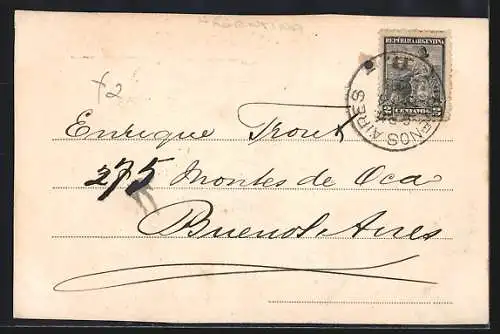 ARGENTINA
REPUBLICA ARGENTINA
2 CENTAVOS 2
BUENOS AIRES
+2
Enrique Trout
275 Montes de Oca
Buenos Aires